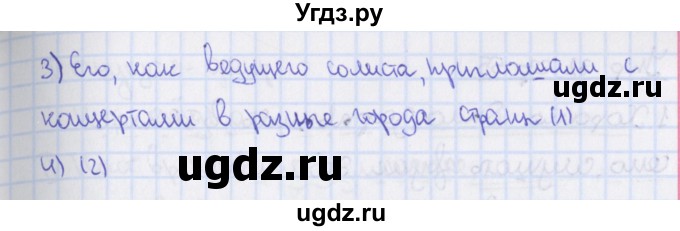 Угдз.ру
3) Его, как ведущего солиста, приглашали с
концертами в разные города страны (1)
4) (2)
ugdz.ru
ugdz.ru
ugdz.ru
ugdz.ru
ugdz.ru